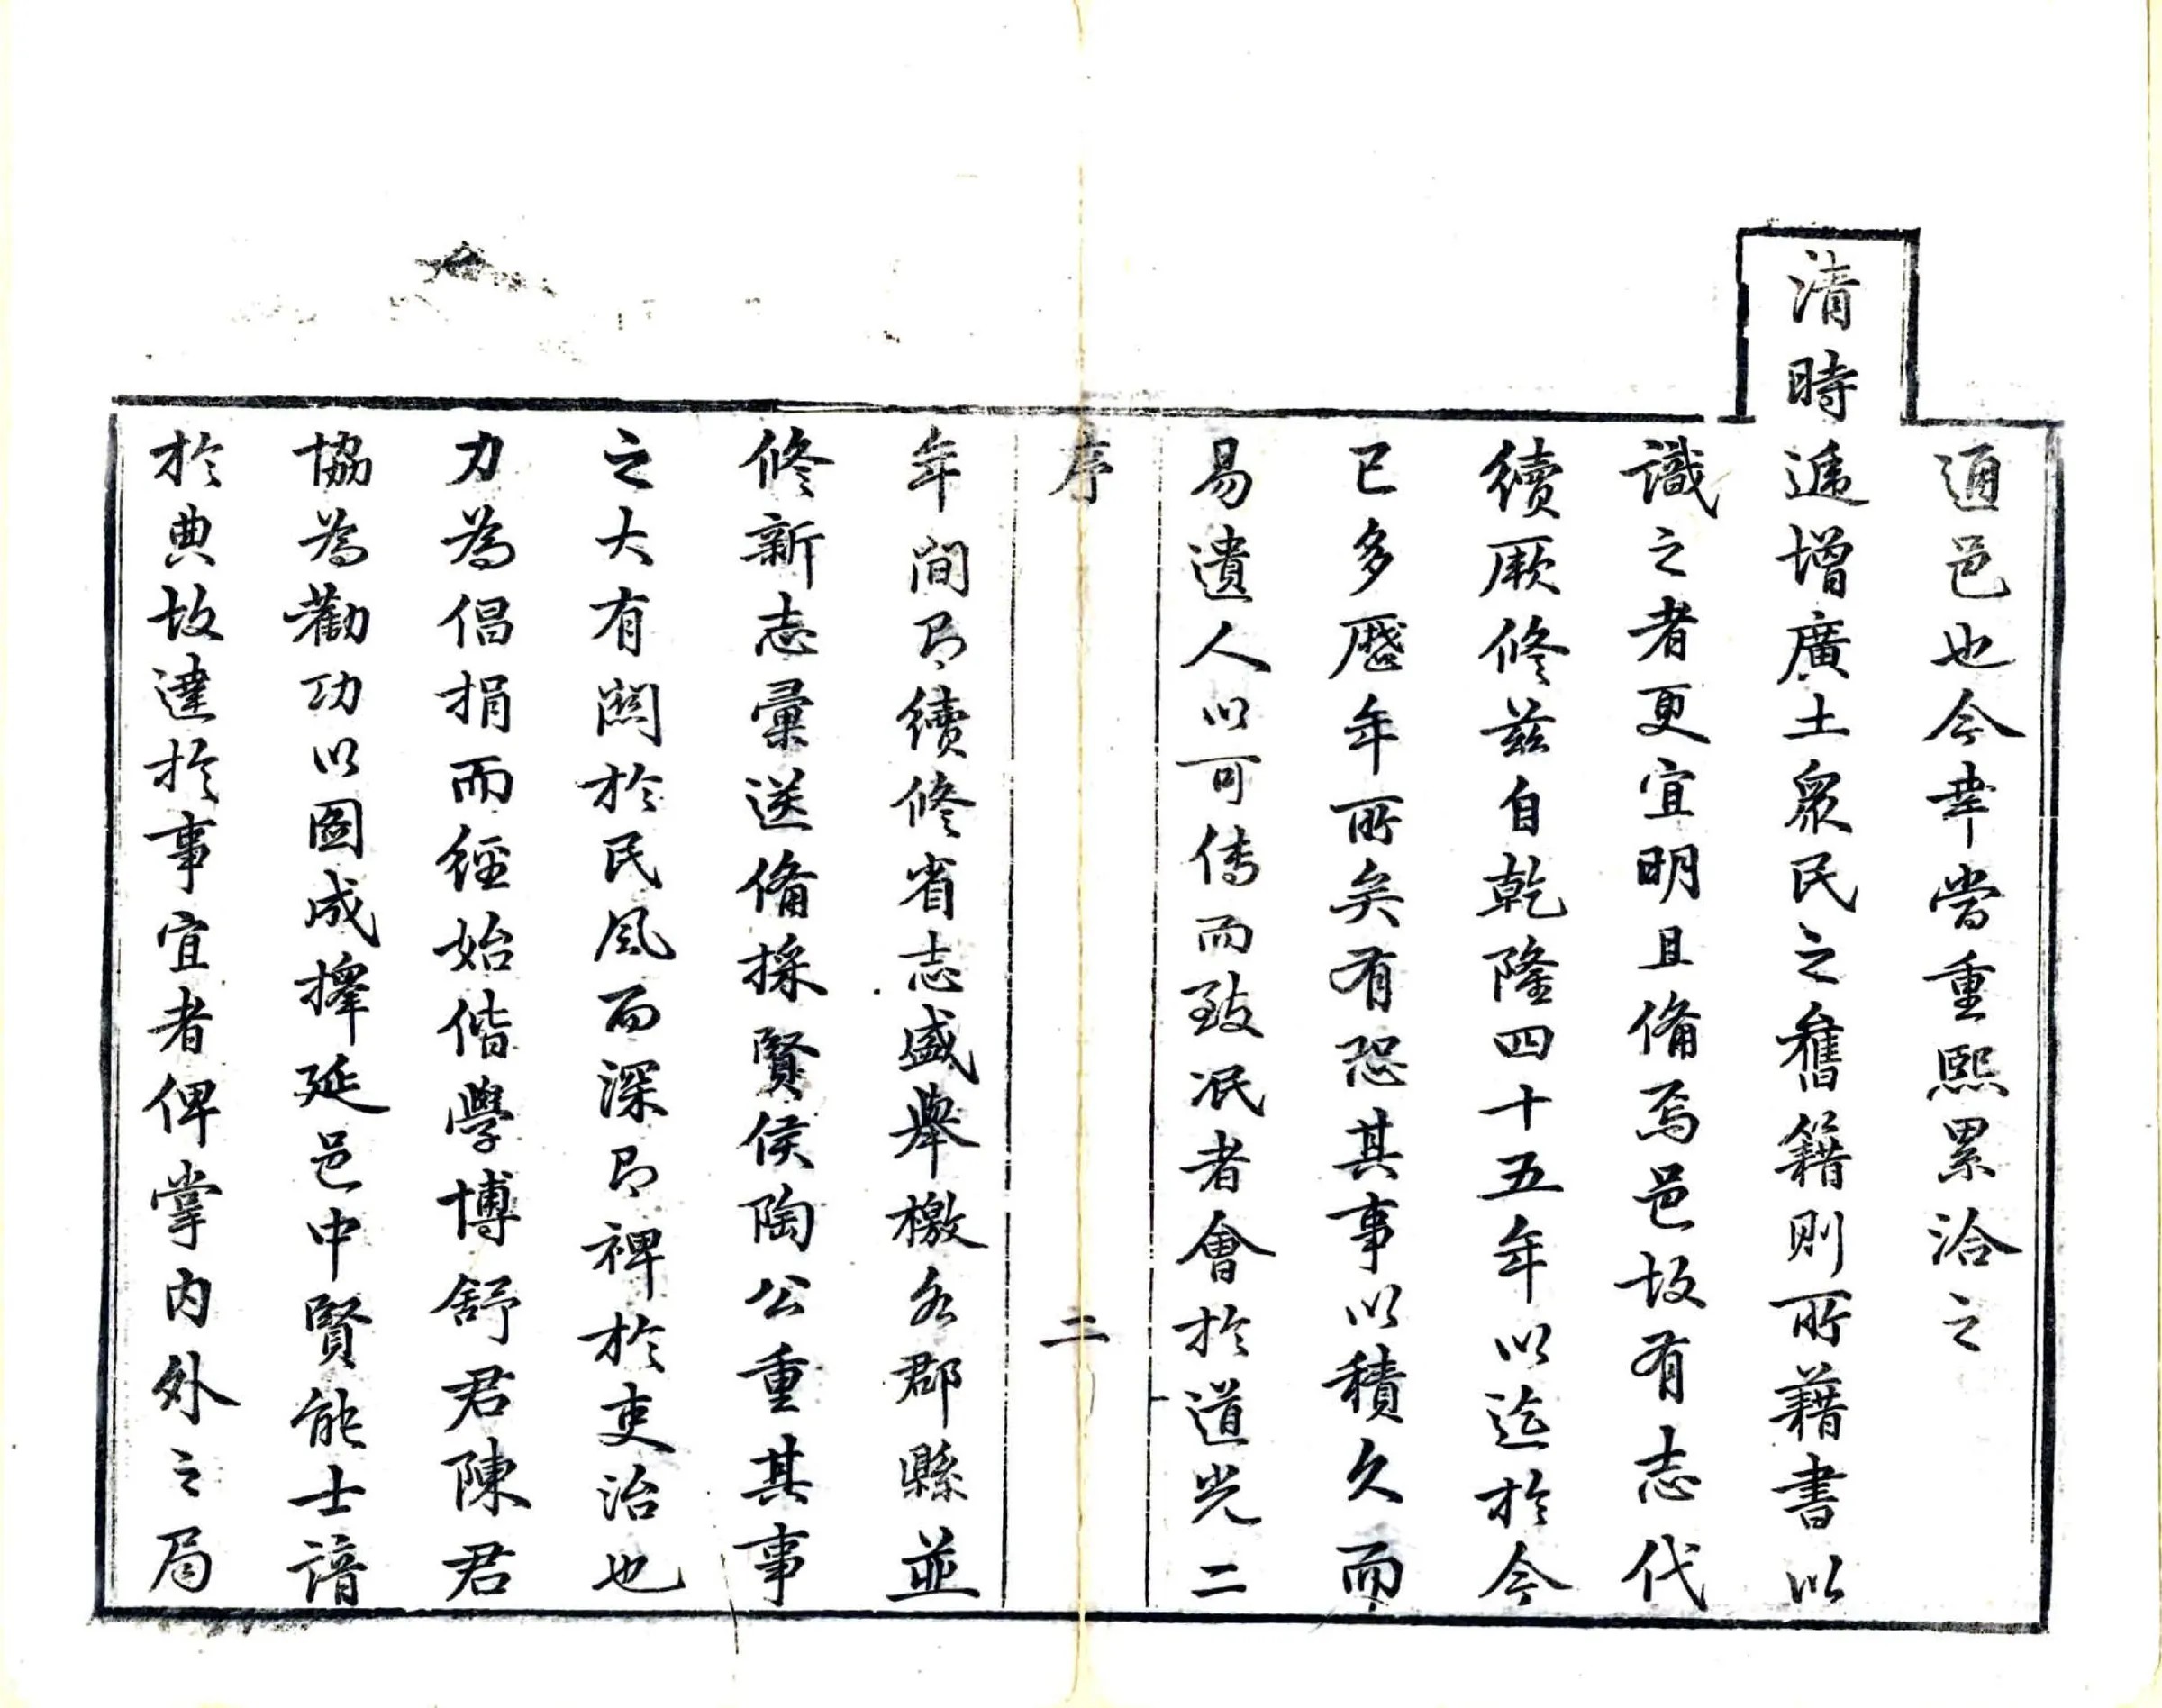 通邑也今幸當重熙累洽之
清時遞增廣土衆民之舊籍則所藉書以
識之者更宜明且備焉邑故有志代
續厥修兹自乾隆四十五年以迄於今
已多歷年所矣有恐其事以積久而
易遺人以可傳而致泯者會於道光二
序 二
年間即續修省志盛舉檄各郡縣並
修新志彙送備採賢侯陶公重其事
之大有關於民風而深即裨於吏治也
力為倡捐而經始偕學博舒君陳君
協為勸功以圖成擇延邑中賢能士諳
於典故達於事宜者俾掌内外之局